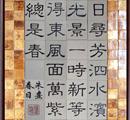 日尋芳泗水濱
光景一時新等
得東風面萬紫
總是春
朱熹
春日